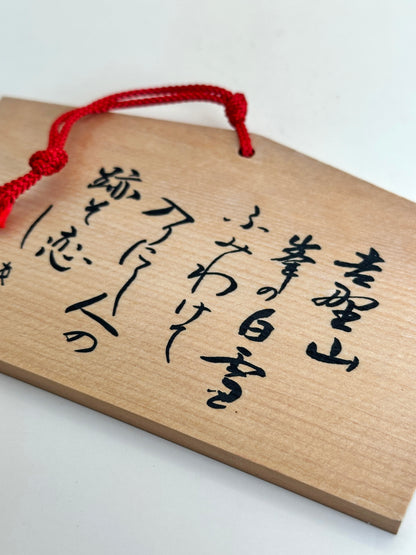 吉野山
峯の白雪
ふみわけて
入りにし人の
跡そ恋
し